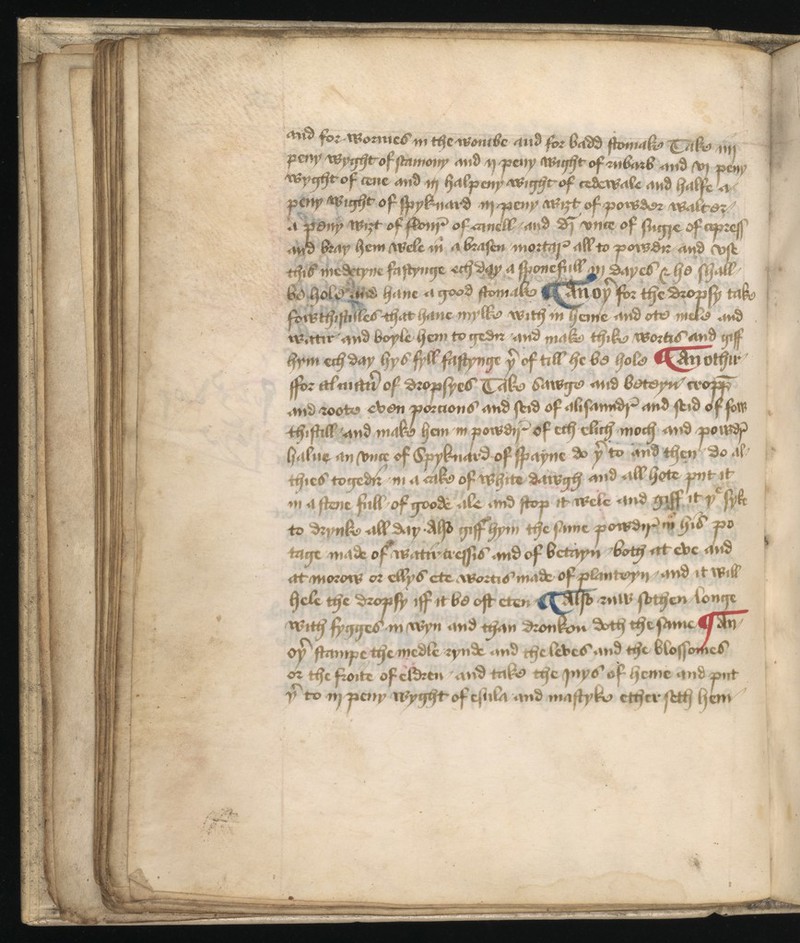 and for wormes in the wombe and for badd stomake Take iiij
peny wyght of scamony and ij peny wight of rubarb and vi peny
wyght of cene and iij halpeny wight of cedewale and halfe a
peny wight of spyknard iij peny wizt of powder walter
a peny wizt of flour of canell and di vnce of sugre of cipress
and bray hem wele in a brasen mortar all to powdir and vse
this medecyne fastynge ech day a sponefull iij dayes & he shall
be hole and haue a good stomake ¶ An oyr for the dropsy take
sowthistules that haue mylke with in heme and ote mele and
watir and boyle hem to gedir and make thike wortis and giff
hym ech day hys fyll fastynge yr of till he be hole ¶ An othir
ffor all man of dropsyes Take sawge and beteyn cropp
and roote even porcions and seid of alisaundir and seid of sow
thistill and make hem in powdir of ech elich moch and powdir
halue an vnce of Spyknard of spayne do yr to and then do al
thies togedir in a cake of white dawgh and all hote put it
in a stene full of goode ale and stop it wele and giff it ye syke
to drynke all day Also giff hym the same powdir in his po
tage made of watir cressis and of betayn both at eve and
at morow or ellys ete wortis made of planteyn and it will
hele the dropsy iff it be oft eten ¶ Also ruw sothen longe
with fygges in wyn and than dronkon doth the same ¶ An
oyr stampe the medle rynde and the leves and the blossomes
or the froite of eldren and take the juys of heme and put
yr to iij peny wyght of esula and mastyke ether seth hem